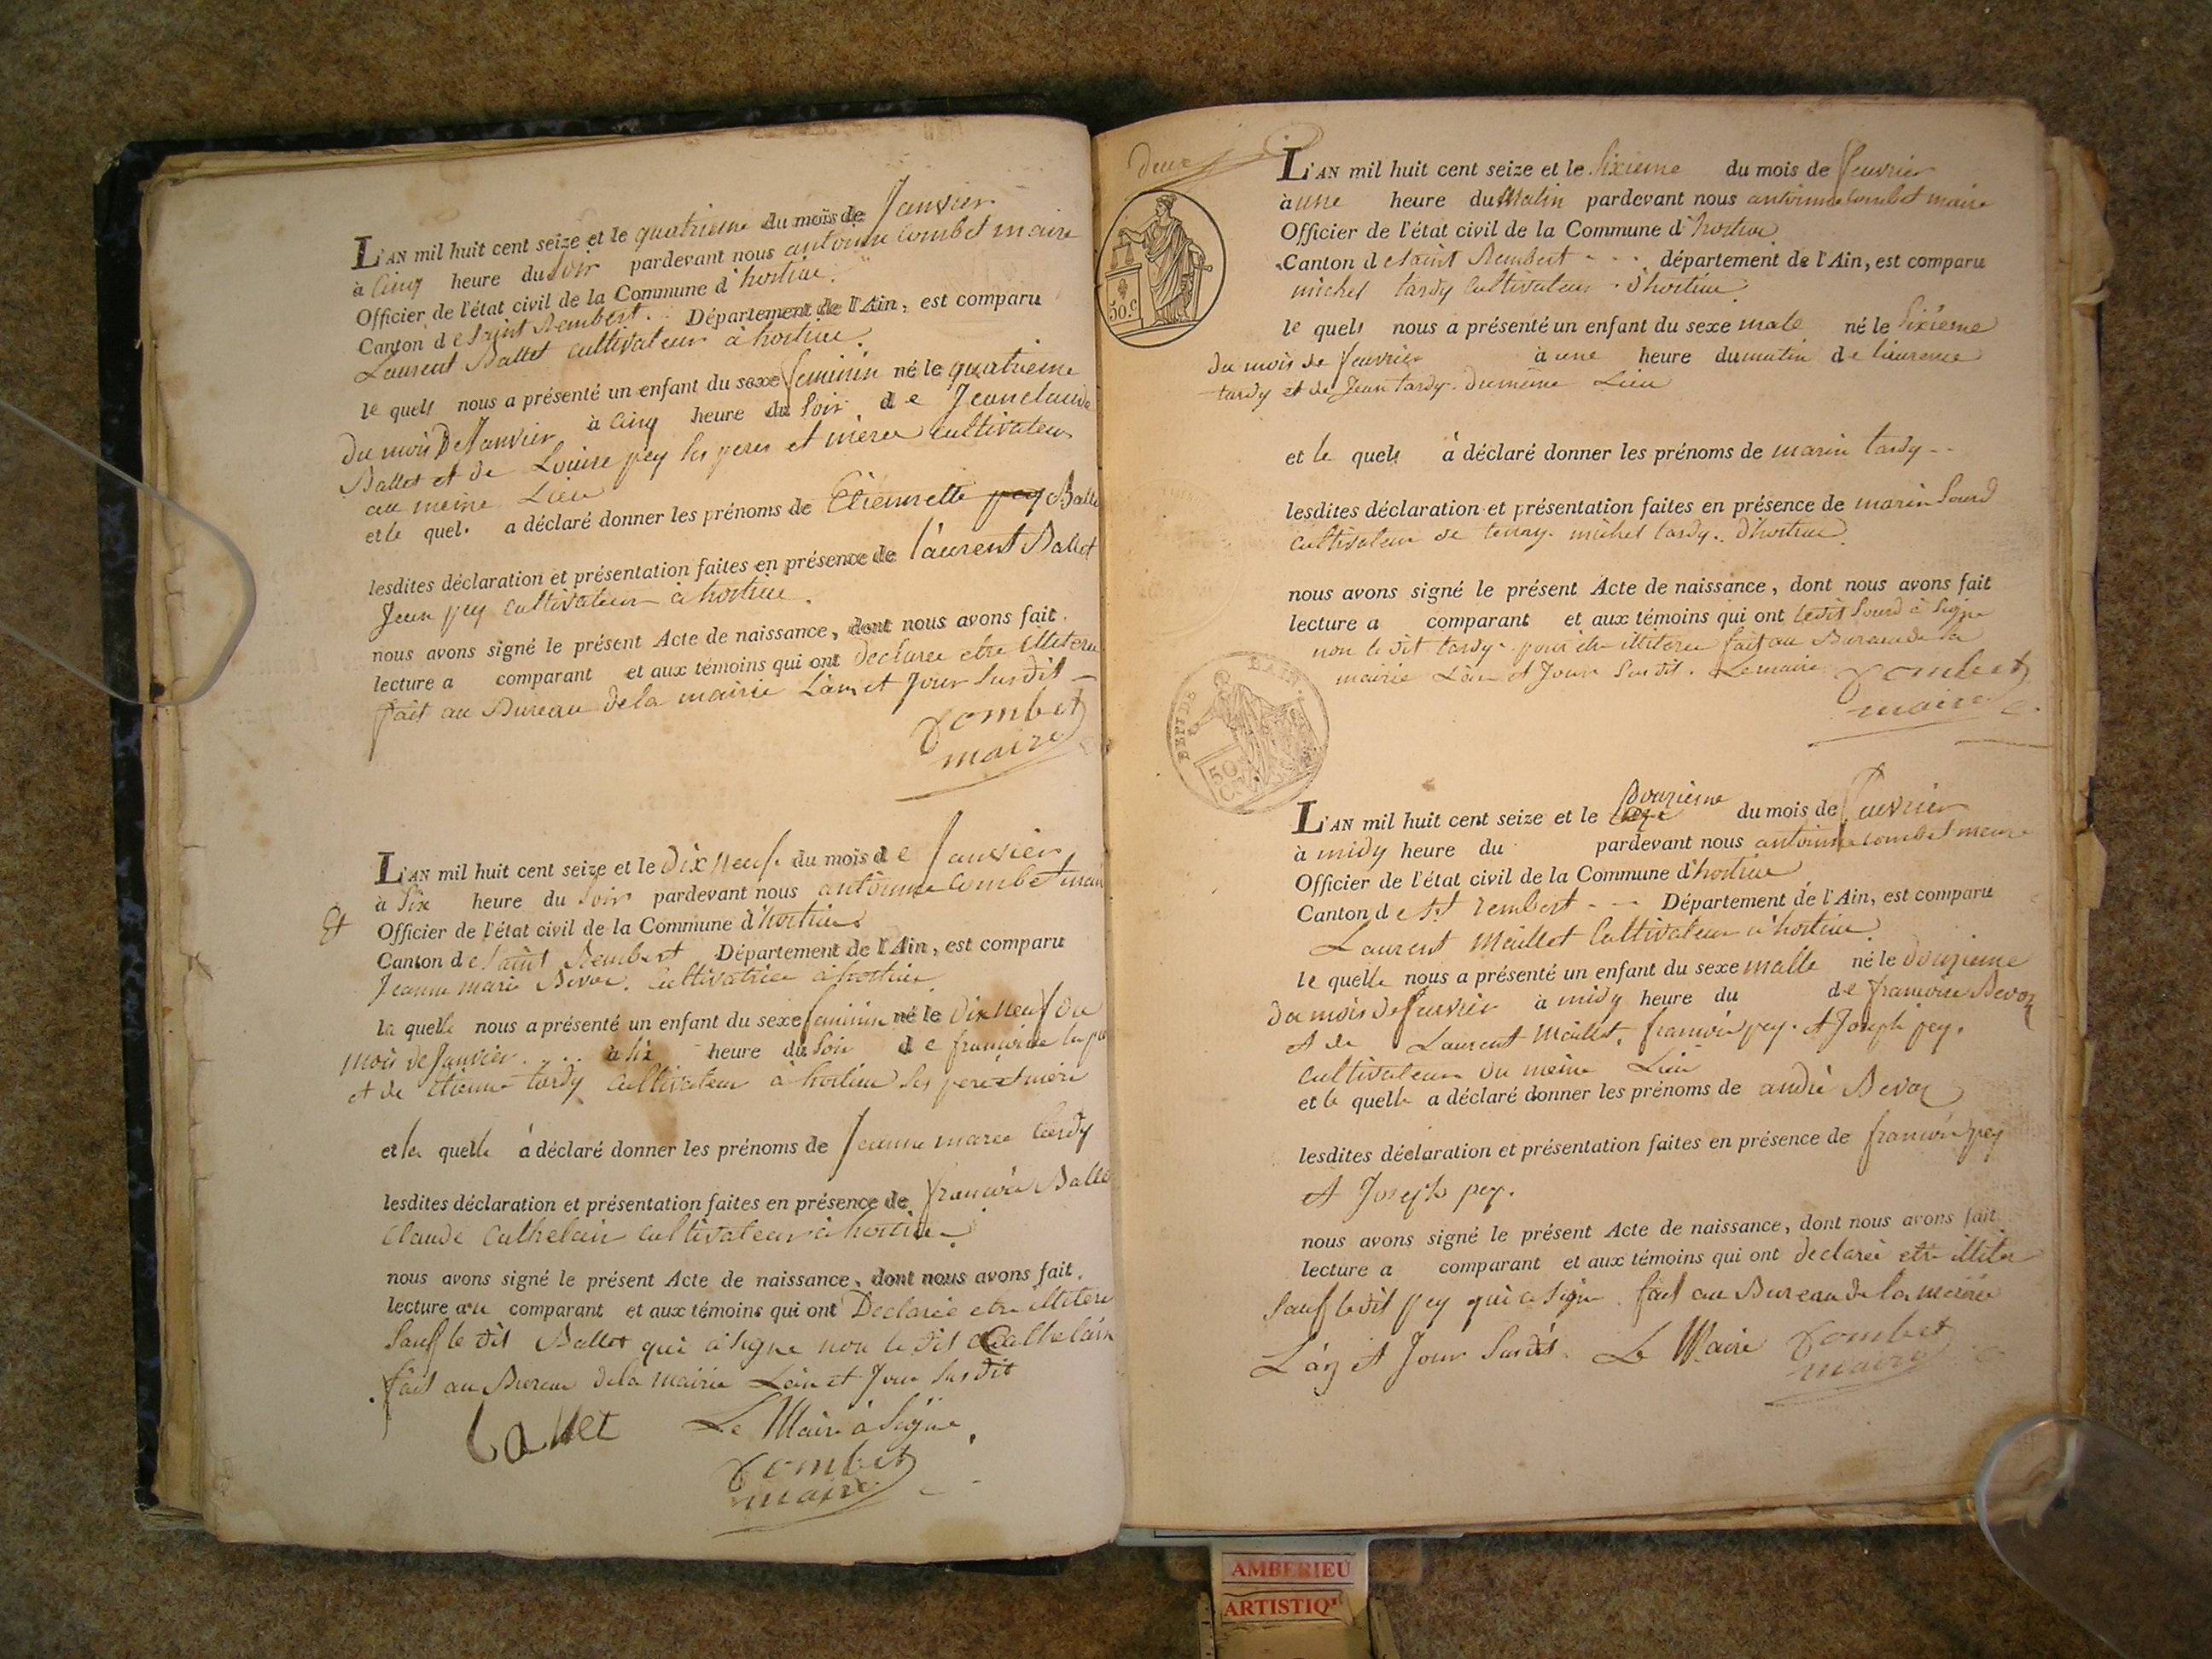 L'AN mil huit cent seize et le quatrieme du mois de Janvier
à Cinq heure du Soir pardevant nous antoinne Combet maire
Officier de l'état civil de la Commune d'hostiae
Canton de Saint Rembert. Département de l'Ain, est comparu
Laurent Ballet cultivateur à hostiae.
le quels nous a présenté un enfant du sexe feminin né le quatrieme
du mois De Janvier à Cinq heure du Soir de Jeanclaude
Ballet et de Louise pey les peres et meres Cultivateur
au meme Lieu
et le quel. a déclaré donner les prénoms de Etiennette pey Balle
lesdites déclaration et présentation faites en présence de laurent Ballet
Jean pey Cultivateur à hostiae.
nous avons signé le présent Acte de naissance, dont nous avons fait
lecture a comparant et aux témoins qui ont Declaree etre illitere
fait au Bureau de la mairie L'an et Jour Susdit
Combet
maire
L'AN mil huit cent seize et le Dix Neuf du mois de Janvier
à Six heure du Soir pardevant nous antoinne Combet mair
Officier de l'état civil de la Commune d'hostiae
Canton de Saint Rembert Département de l'Ain, est comparu
Jeanne marie Bevoz. Cultivatrice à hostiae
la quelle nous a présenté un enfant du sexe feminin né le Dix Neuf Du
mois de Janvier. à Six heure du Soir de francoise
et de Etienne tardy Cultivateur à hostiae Ses pere et mere
et la quelle à déclaré donner les prénoms de Jeanne marie tardy
lesdites déclaration et présentation faites en présence de francois Balle
Claude Cathelain Cultivateur à hostiae
nous avons signé le présent Acte de naissance, dont nous avons fait
lecture au comparant et aux témoins qui ont Declarée etre illitere
Sauf le dit Ballet qui à Signe non le dit Cathelain
fait au Bureau de la mairie L'an et Jour Susdit
ballet Le Maire à Signe
Combet
maire
deux
50.C
L'AN mil huit cent seize et le Sixieme du mois de feuvrier
à une heure du Matin pardevant nous antoinne Combet maire
Officier de l'état civil de la Commune d'hostiae
Canton de Saint Rembert - - département de l'Ain, est comparu
michel tardy Cultivateur d'hostiae
le quels nous a présenté un enfant du sexe male né le Sixieme
du mois de feuvrier à une heure du matin de laurence
tardy et de Jean tardy. du même Lieu
et le quels à déclaré donner les prénoms de marin tardy - -
lesdites déclaration et présentation faites en présence de marin Sourd
Cultivateur de tenay. michel tardy. d'hostiae
nous avons signé le présent Acte de naissance, dont nous avons fait
lecture a comparant et aux témoins qui ont ledit Sourd à Signe
non le dit tardy. pour etre illitere fait au Bureau de la
mairie L'an et Jour Susdit. Le maire Combet
maire
50
C.
L'AN mil huit cent seize et le Douzieme du mois de feuvrier
à midy heure du pardevant nous antoinne Combet maire
Officier de l'état civil de la Commune d'hostiae
Canton de St rembert - - Département de l'Ain, est comparu
Laurent Maillet Cultivateur à hostiae
le quelle nous a présenté un enfant du sexe malle né le Douzieme
du mois de feuvrier à midy heure du de francoise Bevoz
et de Laurent Maillet, francois pey. et Joseph pey.
Cultivateur du meme Lieu
et le quelle a déclaré donner les prénoms de andré Bevoz
lesdites déclaration et présentation faites en présence de francois pey
et Joseph pey.
nous avons signé le présent Acte de naissance, dont nous avons fait
lecture a comparant et aux témoins qui ont declareé etre illiter
Sauf le dit pey qui a Signe fait au Bureau de la mairie
L'an et Jour Susdit. Le Maire Combet
maire
AMBERIEU
ARTISTIQ